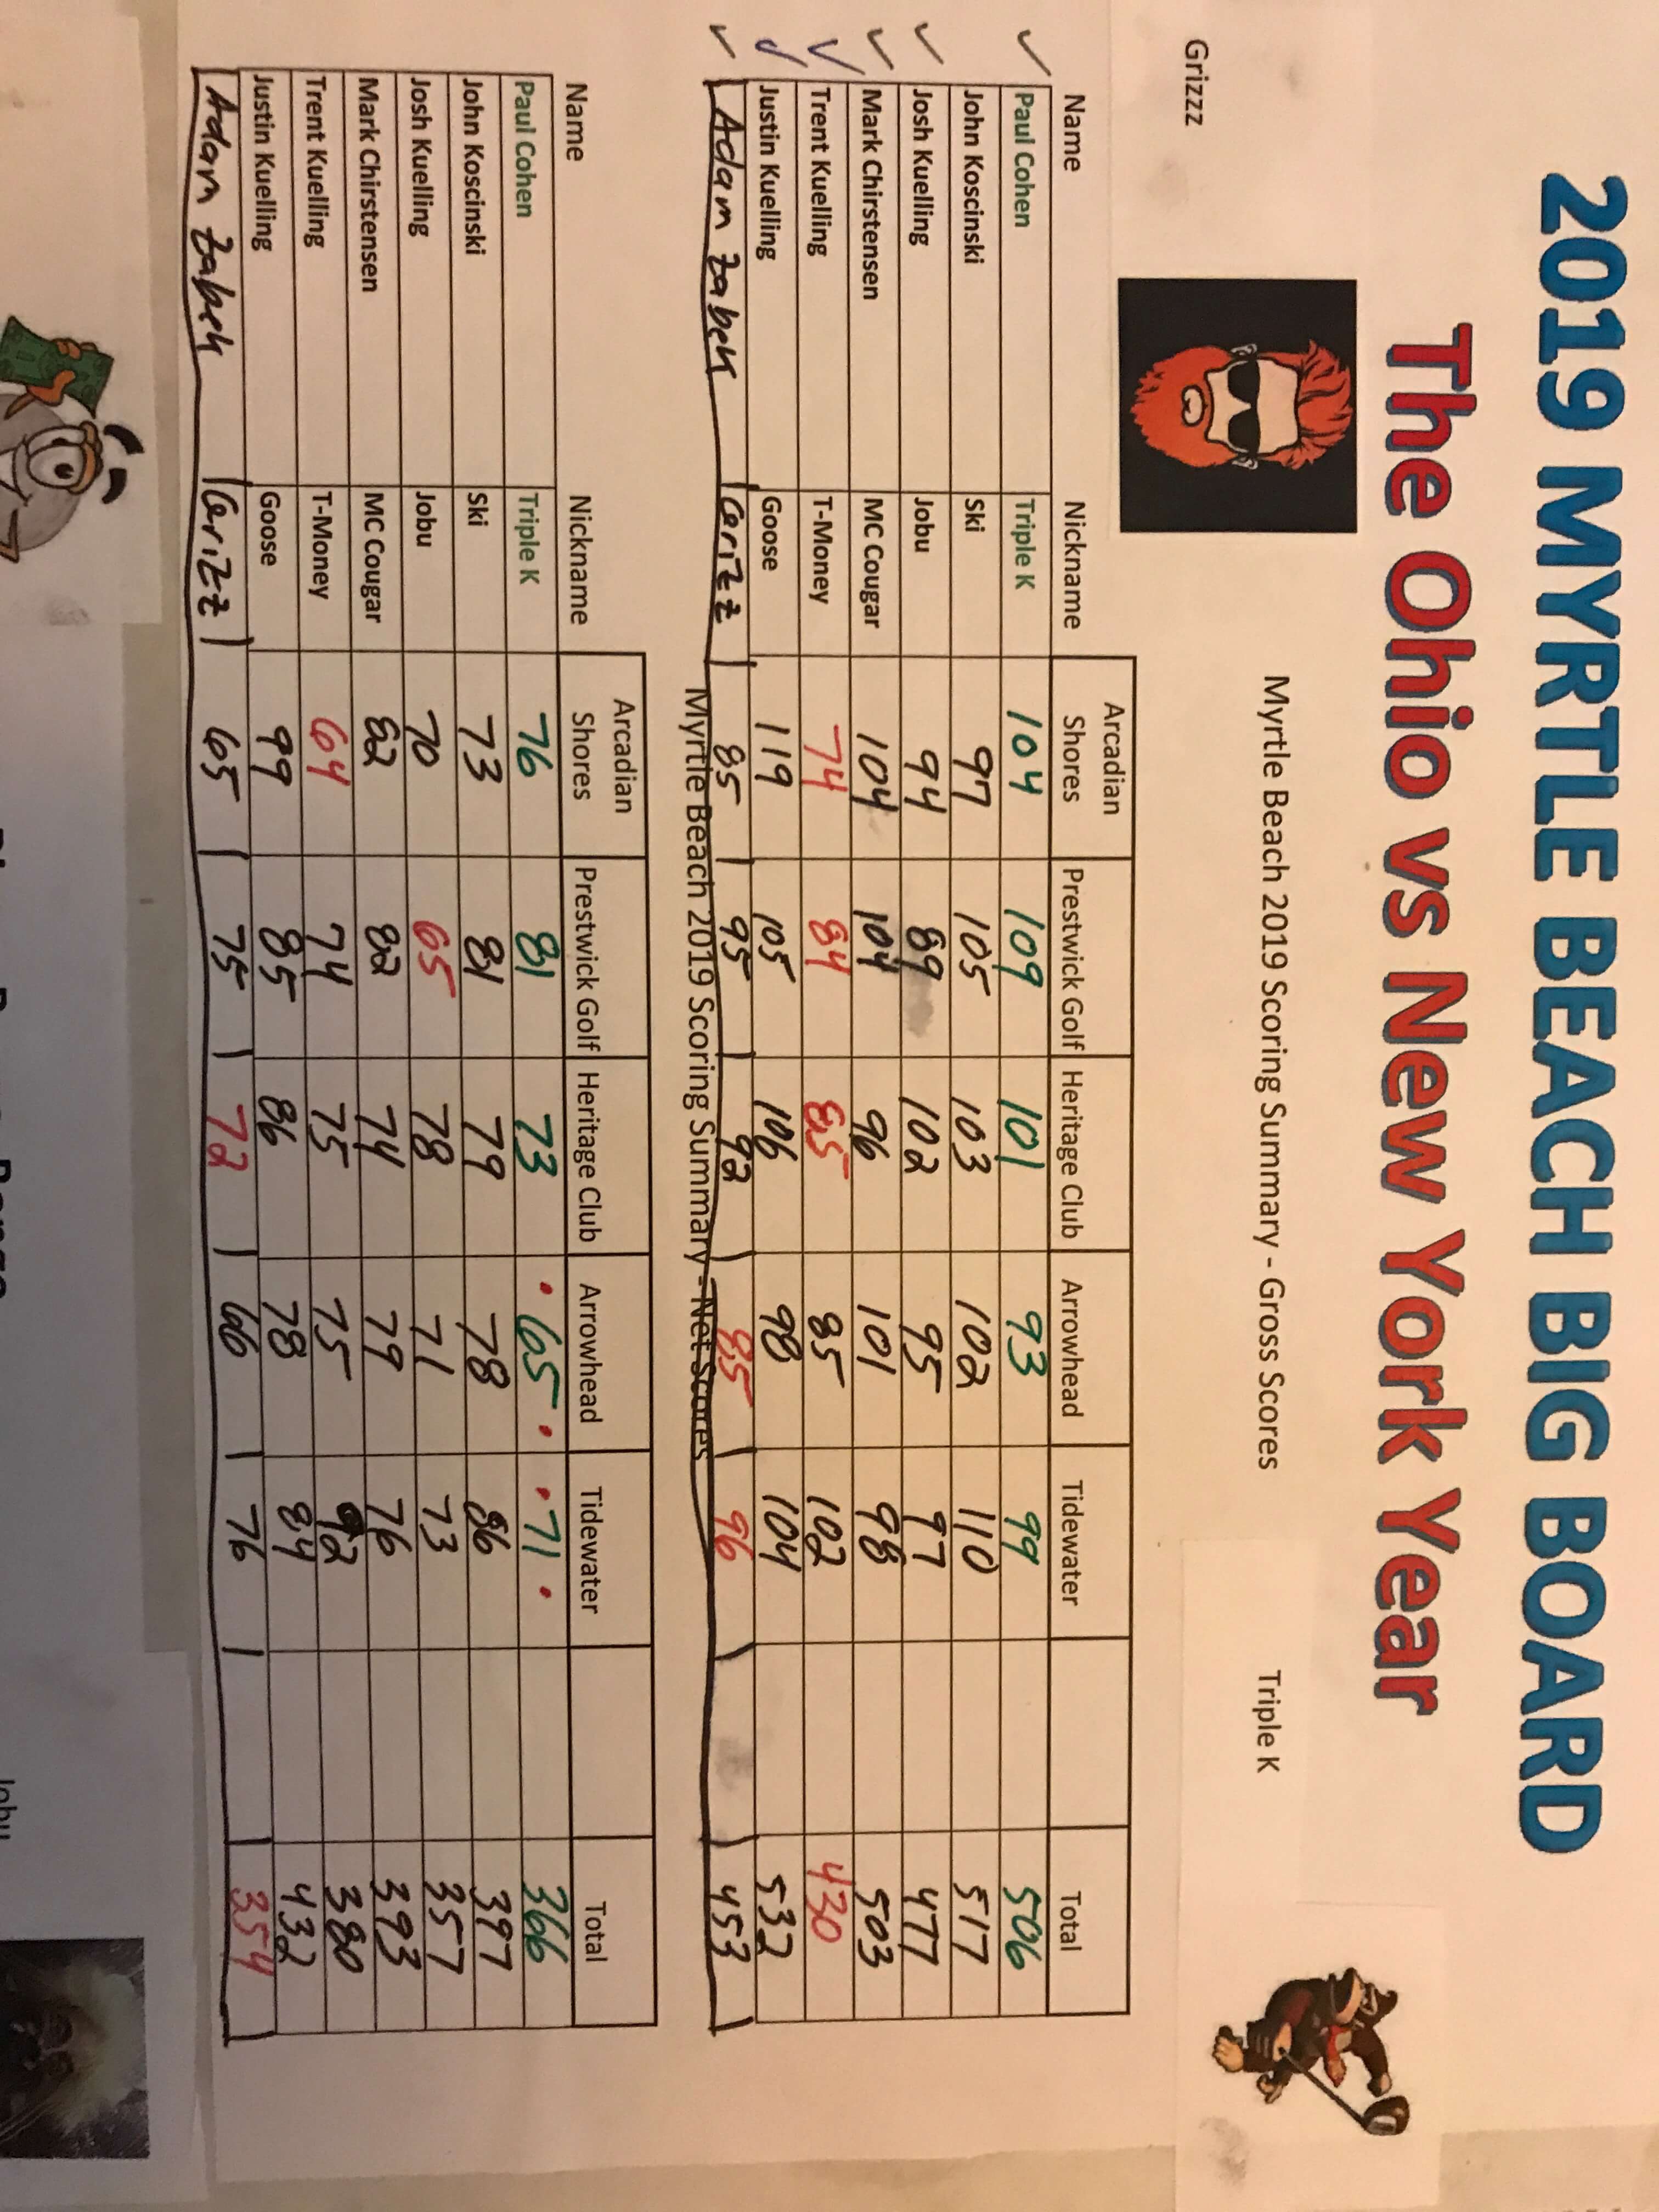 2019 MYRTLE BEACH BIG BOARD
The Ohio vs New York Year
Myrtle Beach 2019 Scoring Summary - Gross Scores
Grizzz
Triple K
Arcadian
Name Nickname Shores Prestwick Golf Heritage Club Arrowhead Tidewater Total
Paul Cohen Triple K 104 109 101 93 99 506
John Koscinski Ski 97 105 103 102 110 517
Josh Kuelling Jobu 94 89 102 95 97 477
Mark Chirstensen MC Cougar 104 104 96 101 98 503
Trent Kuelling T-Money 74 84 85 85 102 430
Justin Kuelling Goose 119 105 106 98 104 532
Adam Zabek Grizz 85 95 92 85 96 453
Myrtle Beach 2019 Scoring Summary - Net Scores
Arcadian
Name Nickname Shores Prestwick Golf Heritage Club Arrowhead Tidewater Total
Paul Cohen Triple K 76 81 73 65 71 366
John Koscinski Ski 73 81 79 78 86 397
Josh Kuelling Jobu 70 65 78 71 73 357
Mark Chirstensen MC Cougar 82 82 74 79 76 393
Trent Kuelling T-Money 64 74 75 75 92 380
Justin Kuelling Goose 99 85 86 78 84 432
Adam Zabek Grizz 65 75 72 66 76 354